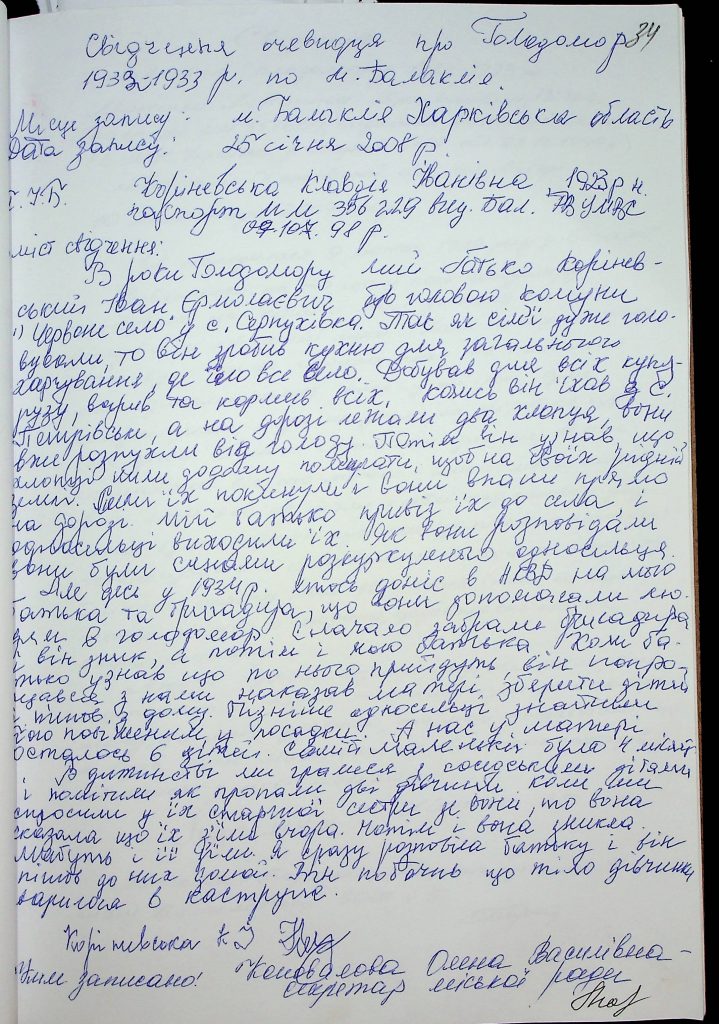 34
Свідчення очевидця про Голодомор
1932-1933 р. по м. Балаклія.
Місце запису: м. Балаклія Харківська область
Дата запису: 25 січня 2008 р
П.І.Б. Коріневська Клавдія Іванівна, 1923 р н.
паспорт ММ 356229 вид. Бал.
98 р.
міст свідчення:
В роки Голодомору мій батько Корінев-
ський Іван Єрмолаєвич був головою комуни
"Червоне село" у с. Серпухівка. Так як сім'ї дуже голо-
вували, то він зробив кухню для загального
харчування, де їло все село. Добував для всіх куку-
рузу, варив та кормив всіх. Колись він їхав з с.
Петрівськ, а на дорозі лежали два хлопця, вони
вже розпухли від голоду. Потім він узнав, що
хлопці йшли додому помирати, щоб на своїй рідній
землі. Сили їх покинули і вони впали прямо
на дорозі. Мій батько привіз їх до села, і
односельці виходили їх. Як вони розповідали
вони були синами розкуркуленого односельця.
Але десь у 1934 р. хтось доніс в НКВД на мого
батька та бригадира, що вони допомагали лю-
дям в голодомор. Сначало забрали бригадира
і він зник, а потім і мого батька. Коли ба-
тько узнав що по нього прийдуть, він попро-
щався з нами наказав матері зберегти дітей
і пішов з дому. Пізніше односельці знайшли
його повішеним у посадці. А нас у матері
осталось 6 дітей. Самій маленькій було 4 місяці
В дитинстві ми грались з сусідськими дітьми
і помітили як пропали дві дівчинки коли ми
спросили у їх старшої сестри де вони, то вона
сказала що їх з'їли вчора. Потім і вона зникла.
Мабуть і її з'їли. Я сразу розповіла батьку і він
пішов до них домой. Він побачив що тіло дівчинки
варилося в каструлі.
Коріневська К І
Мим записано: Коновалова Олена Василівна -
секретар міської ради